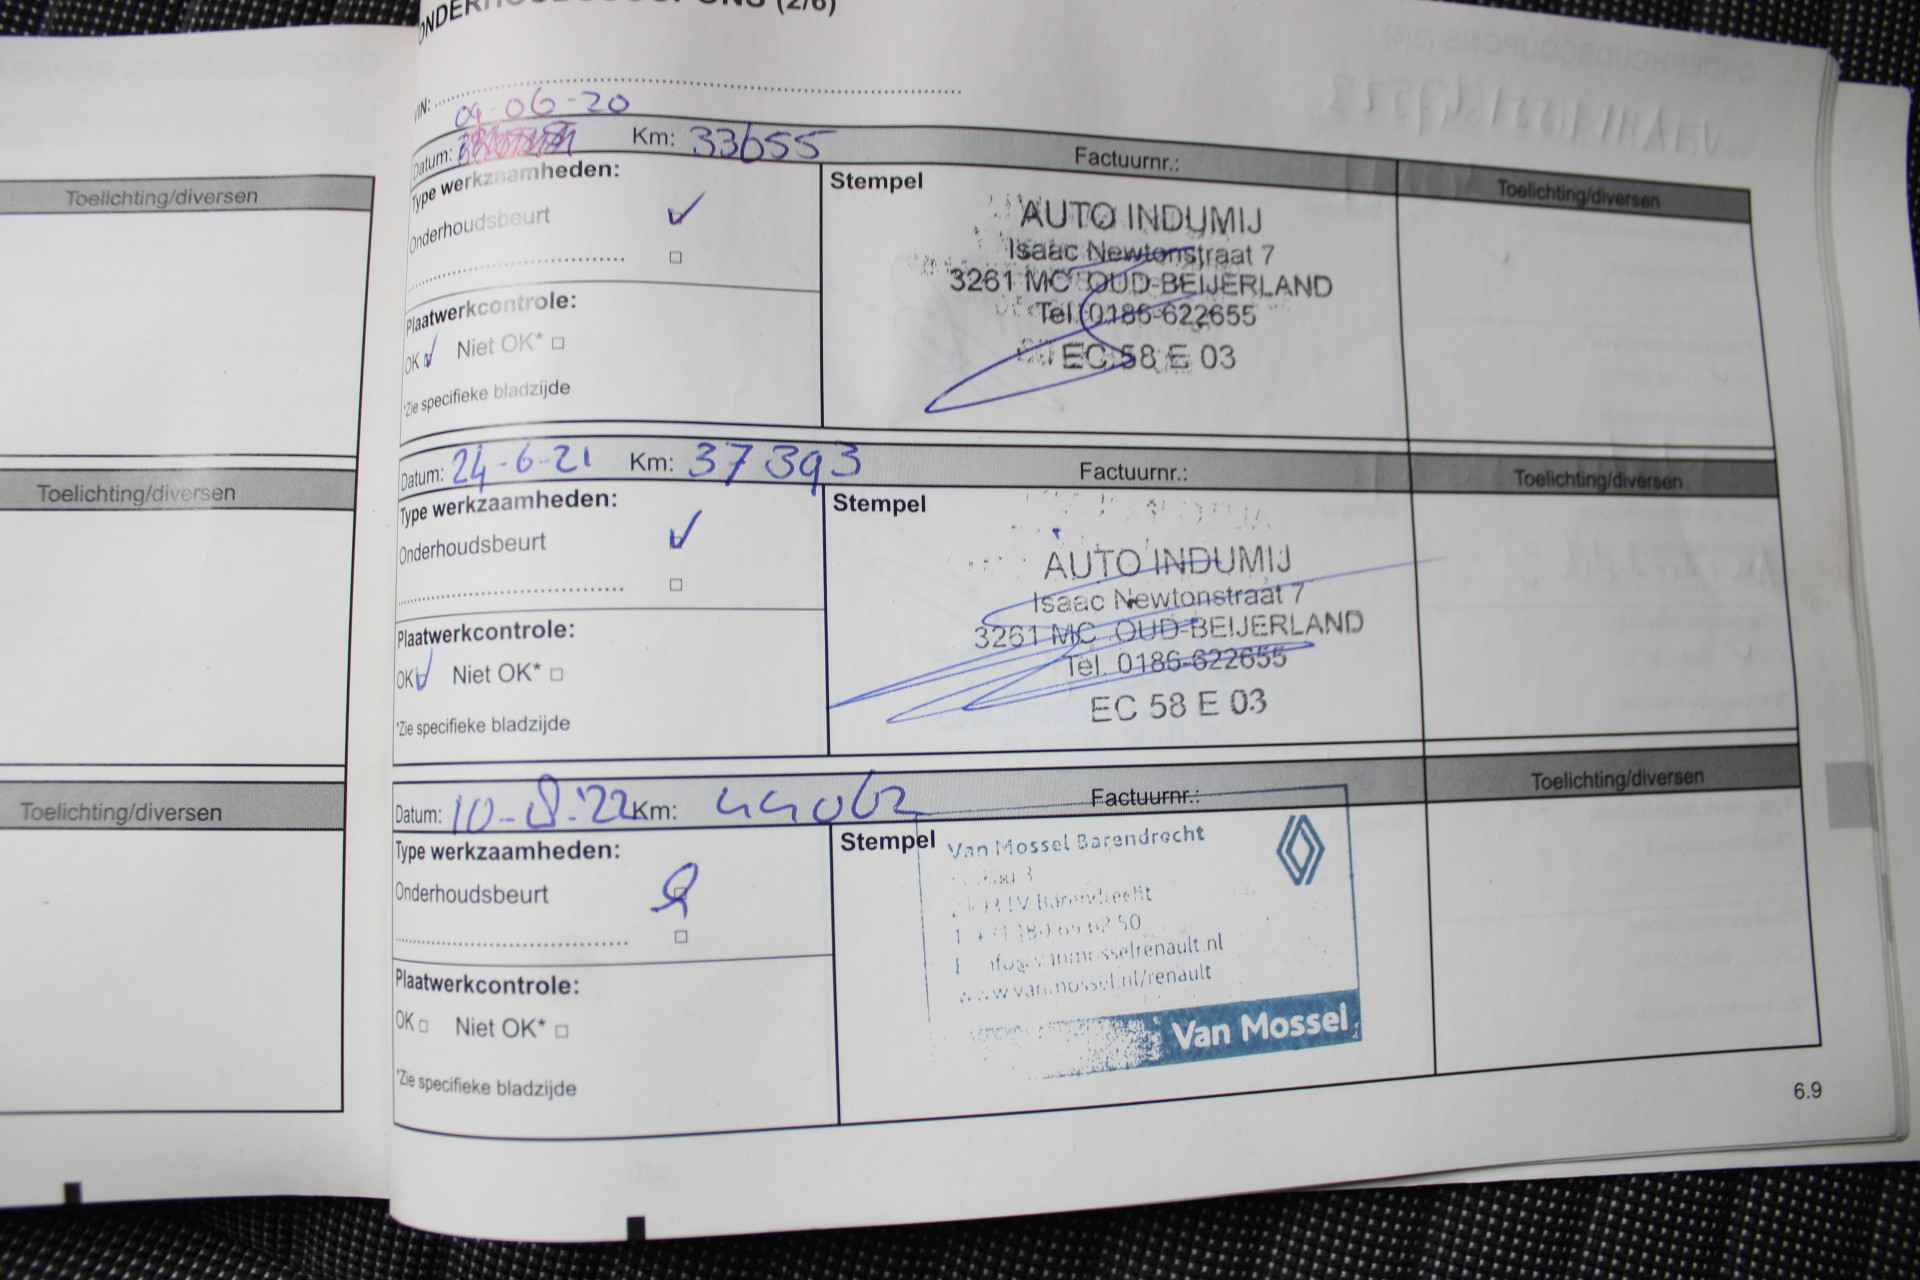 ONDERHOUDSCOUPONS (2/6)
VIN:
09-06-20
Datum: Km: 33655 Factuurnr.: Toelichting/diversen
Type werkzaamheden:
Stempel
Onderhoudsbeurt
AUTO INDUMIJ
Isaac Newtonstraat 7
3261 MC OUD-BEIJERLAND
Tel. 0186-622655
EC 58 E 03
Plaatwerkcontrole:
OK Niet OK*
*Zie specifieke bladzijde
Datum: 24-6-21 Km: 37393 Factuurnr.: Toelichting/diversen
Type werkzaamheden:
Stempel
Onderhoudsbeurt
AUTO INDUMIJ
Isaac Newtonstraat 7
3261 MC OUD-BEIJERLAND
Tel. 0186-622655
EC 58 E 03
Plaatwerkcontrole:
OK Niet OK*
*Zie specifieke bladzijde
Datum: 10-8-'22 Km: 44062 Factuurnr.: Toelichting/diversen
Type werkzaamheden:
Stempel
Onderhoudsbeurt
Van Mossel Barendrecht
Barendrecht
info@vanmosselrenault.nl
www.vanmossel.nl/renault
Van Mossel
Plaatwerkcontrole:
OK Niet OK*
*Zie specifieke bladzijde
6.9
Toelichting/diversen
Toelichting/diversen
Toelichting/diversen